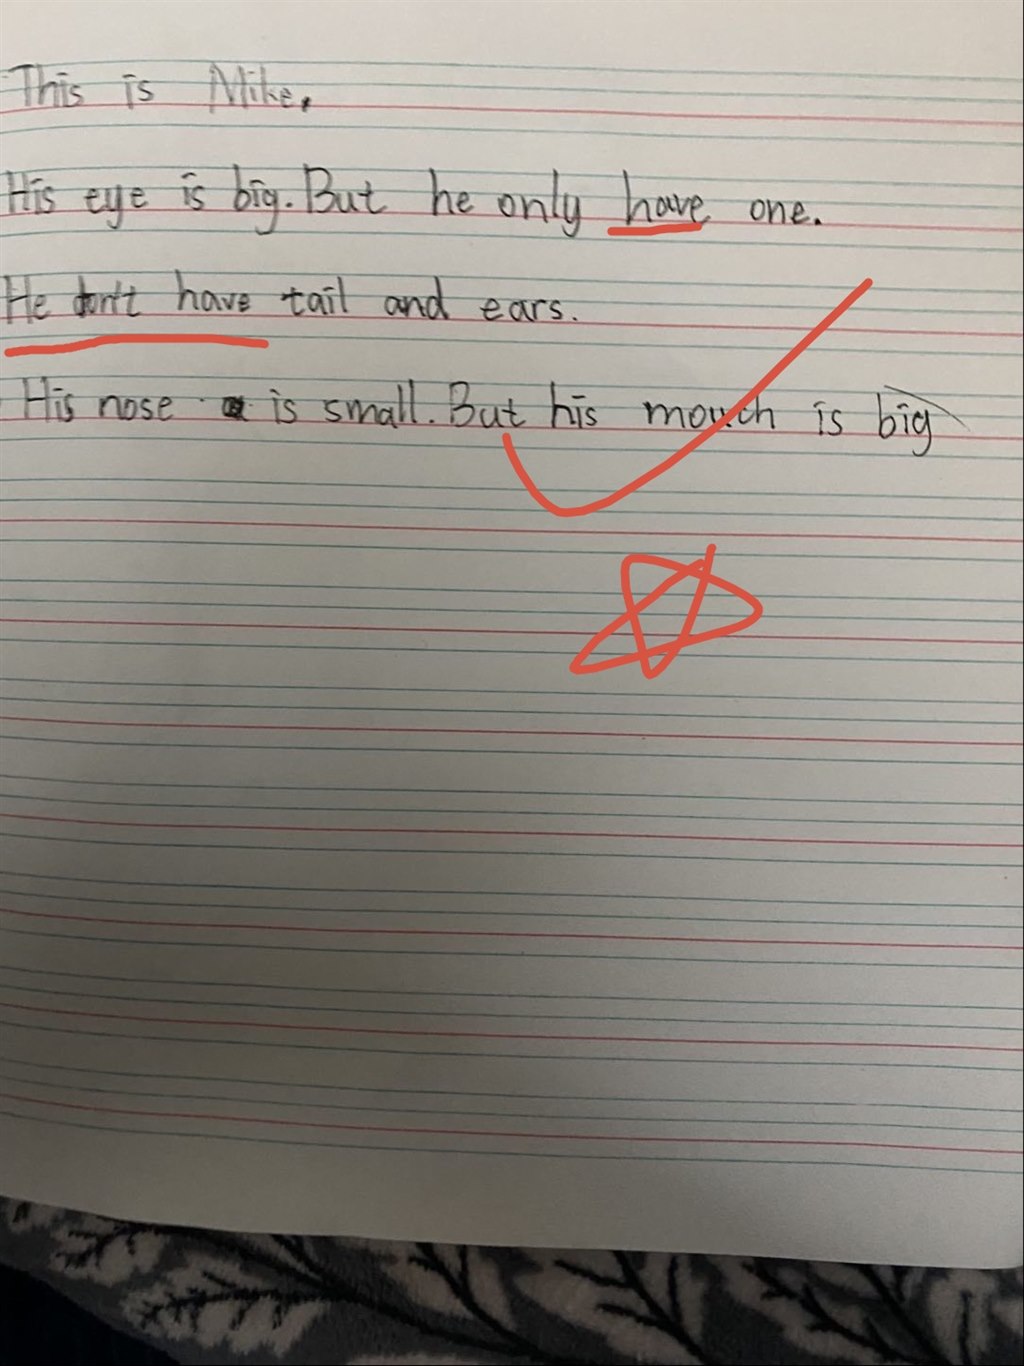 This is Mike.
His eye is big. But he only have one.
He don't have tail and ears.
His nose is small. But his mouch is big